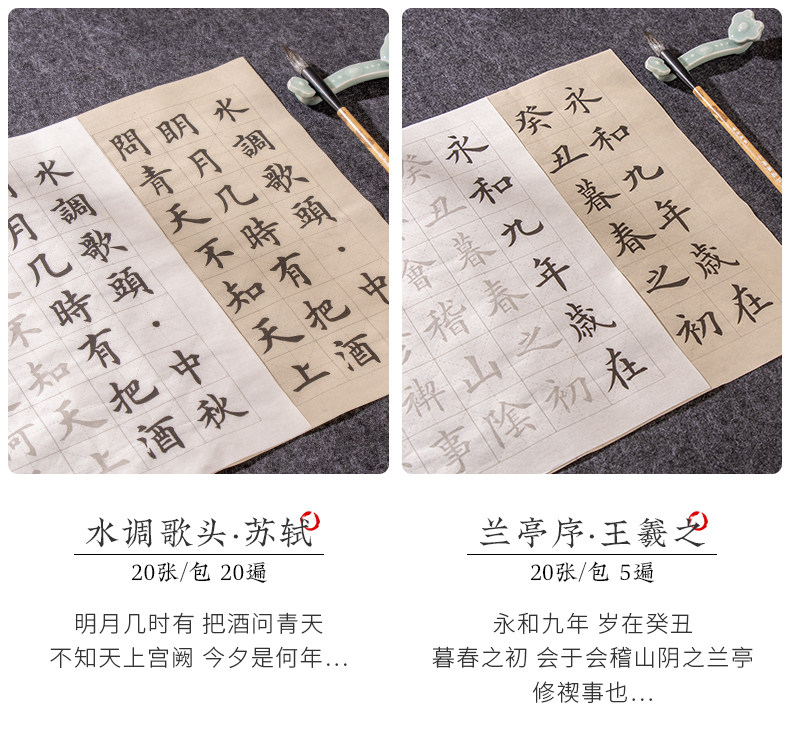 水調歌頭·中
明月几時有把酒
問青天不知天上
水調歌頭·中秋
月几時有把酒
不知天上
永和九年歲在
癸丑暮春之初
永和九年歲在
癸丑暮春之初
會稽山陰
禊事
水调歌头·苏轼
20张/包 20遍
明月几时有 把酒问青天
不知天上宫阙 今夕是何年...
兰亭序·王羲之
20张/包 5遍
永和九年 岁在癸丑
暮春之初 会于会稽山阴之兰亭
修禊事也...